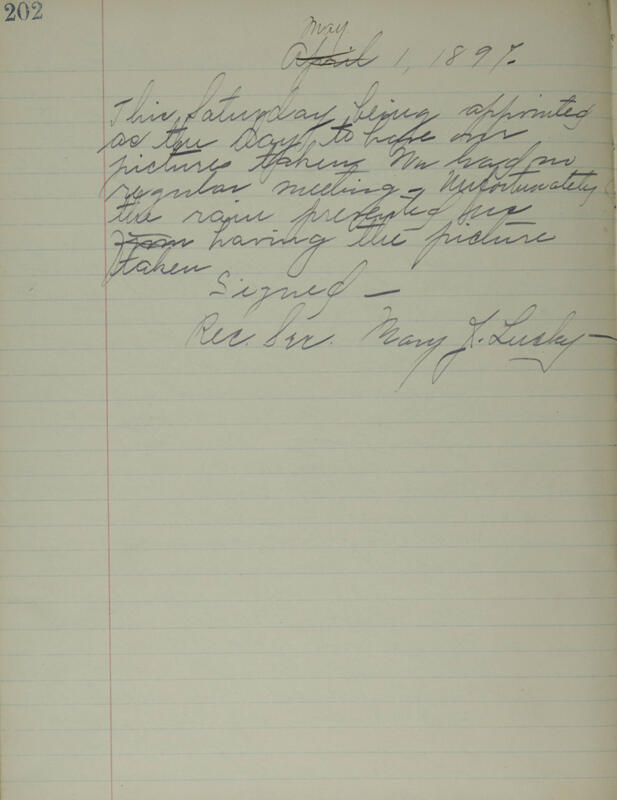 202
May
April 1, 1897.
This Saturday being appointed
as the Day to have our
pictures taken We had no
regular meeting - Unfortunately
the rain prevented us
from having the picture
taken
Signed -
Rec. Sec. Mary L. Lusky -